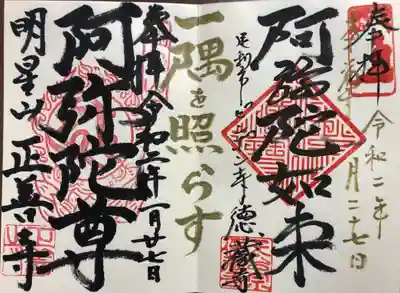 奉拝
令和二年
月二十七日
阿弥陀如来
徳蔵寺
一隅を照らす
奉拝 令和二年一月廿七日
阿弥陀尊
明星山 正善寺